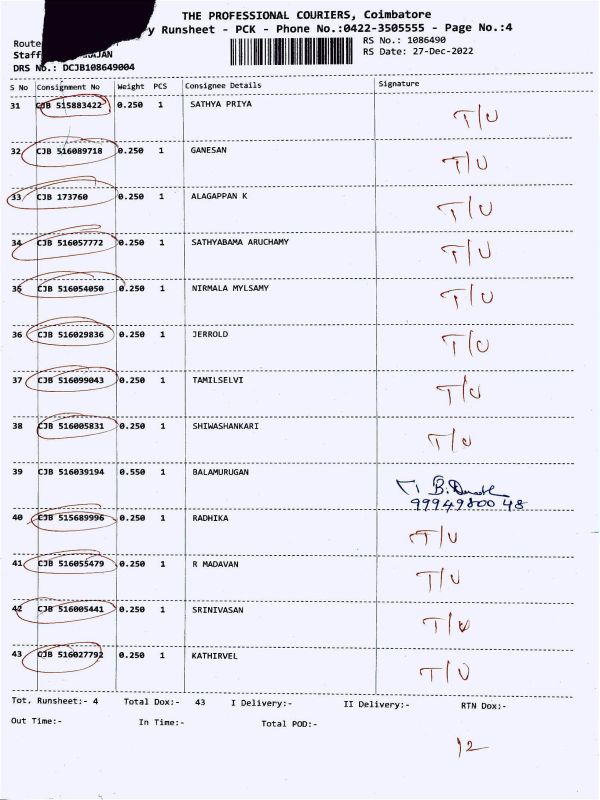 THE PROFESSIONAL COURIERS, Coimbatore
y Runsheet - PCK - Phone No.:0422-3505555 - Page No.:4
Route
RS No.: 1086490
Staff JAN
RS Date: 27-Dec-2022
DRS No.: DCJB108649004
S No Consignment No Weight PCS Consignee Details Signature
31 CJB 515883422 0.250 1 SATHYA PRIYA T/U
32 CJB 516089718 0.250 1 GANESAN T/U
33 CJB 173760 0.250 1 ALAGAPPAN K T/U
34 CJB 516057772 0.250 1 SATHYABAMA ARUCHAMY T/U
35 CJB 516054050 0.250 1 NIRMALA MYLSAMY T/U
36 CJB 516029836 0.250 1 JERROLD T/U
37 CJB 516099043 0.250 1 TAMILSELVI T/U
38 CJB 516005831 0.250 1 SHIWASHANKARI T/U
39 CJB 516039194 0.550 1 BALAMURUGAN B.
9994980048
40 CJB 515689996 0.250 1 RADHIKA T/U
41 CJB 516055479 0.250 1 R MADAVAN T/U
42 CJB 516005441 0.250 1 SRINIVASAN T/U
43 CJB 516027792 0.250 1 KATHIRVEL T/U
Tot. Runsheet:- 4 Total Dox:- 43 I Delivery:- II Delivery:- RTN Dox:-
Out Time:- In Time:- Total POD:-
12